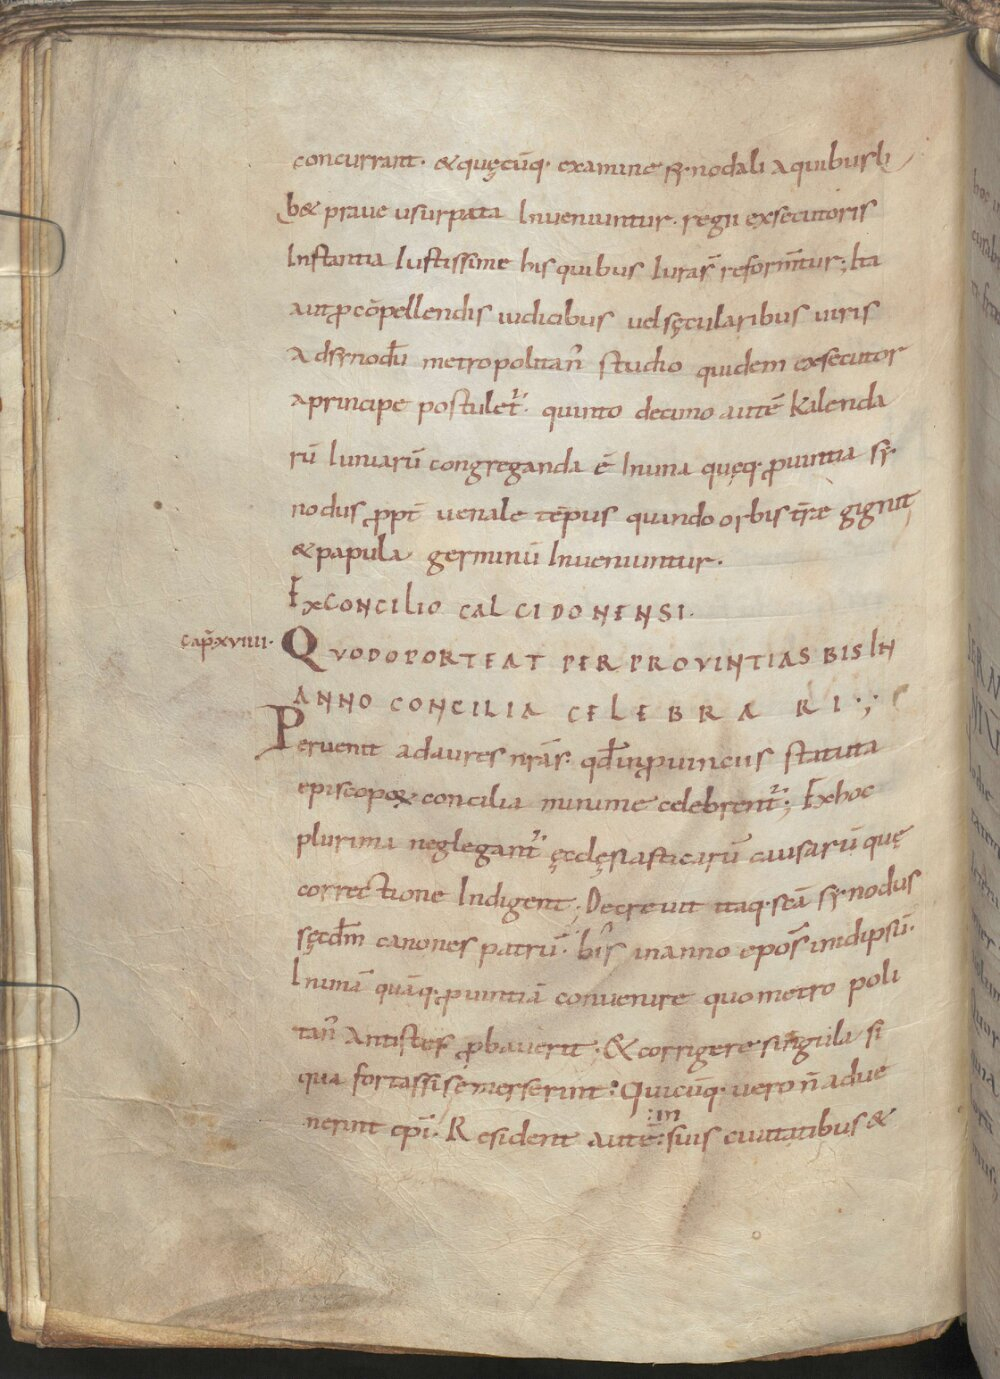 concurrant· &quęcūq· examine sy·nodali aquibusli
b& praue usurpata Inueniuntur· regii exsecutoris
Instantia Iustissime his quibus Iurar̄ reform̄tur; Ita
aut ꝓcōpellendis iudicibus uel sęcularibus uiris
Adsynodū metropolitan̄ studio quidem exsecutor
aprincipe postulet̄· quinto decimo autē Kalenda
rū Iuniarū congreganda ē Inuna quęq· ꝓuintia sy·
nodus ꝓpt̄ uenale tēpus quando orbis t̄re gignit
&papula germinū Inueniuntur·
ExCONCILIO CALCIDONENSI·
Cap̄·xviiii·
QVODOPORTEAT PERPROVINTIAS BIS IN
ANNO CONCILIA CELEBRARI·;·
Peruenit adaures nrās· qđ inꝓuinciis statuta
episcopoꝝ concilia minime celebrent̄; Exhoc
plurima neglegant̄ ęcclęsiasticarū causarū quę
correctione Indigent; Decreuit itaq· scā synodus
sęcđm canones patrū· bis inanno epōs inidipsū·
Inunā quāq· ꝓuintiā conuenire quo metro poli
tan̄ Antistes ꝓbauerit· &corrigere singula si
qua fortassis emerserint: Quicūq· uero n̄ adue
nerint ep̄i· Resident autē :in suis ciuitatibus &